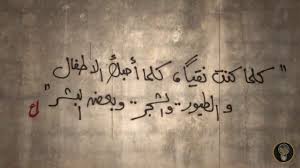 "كلما كنت نقياً، كلما أحبك الاطفال
والطيور.. والشجر.. وبعض البشر"